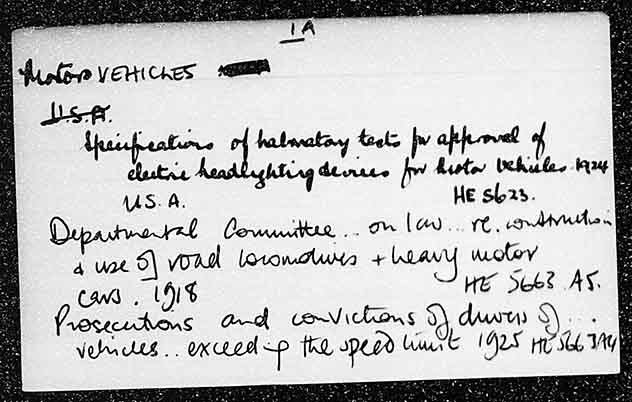 1A
Motor VEHICLES
U.S.A.
Specifications of laboratory tests for approval of
electric headlighting devices for motor vehicles. 1924
U.S.A. HE 5623.
Departmental Committee.. on law.. re. construction
& use of road locomotives + heavy motor
cars. 1918 HE 5663 .A5.
Prosecutions and convictions of drivers of ...
vehicles.. exceeding the speed limit 1925 HE 5663 A4